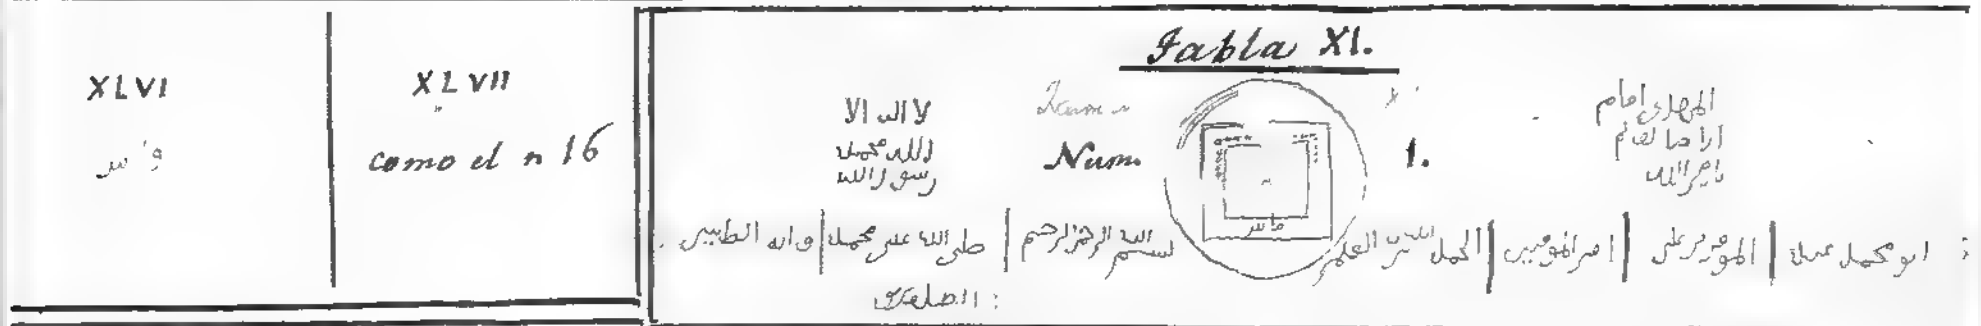 XLVI
فاس
XLVII
como el n 16
Tabla XI.
Num. 1.
لا اله الا
الله محمد
رسول الله
فاس
المهدى امام
بامر الله
ابو محمد عبد | المومن بن على | امير المومنين | الحمد لله رب العلمين
بسم الله الرحمن الرحيم | صلى الله على محمد | واله الطيبين
الطاهرين